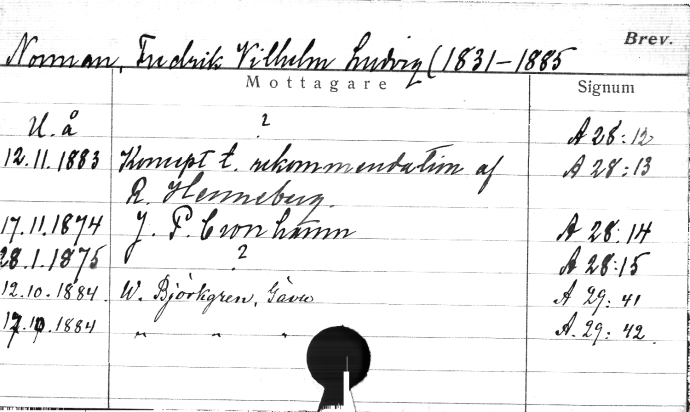 Brev.
Norman, Fredrik Vilhelm Ludvig (1831-1885
Mottagare Signum
U. å ? A 28:12
12.11.1883 Koncept t. rekommendation af A 28:13
R. Henneberg.
17.11.1874 J. P. Cronhamn A 28:14
28.1.1875 ? A 28:15
12.10.1884. W. Björkgren, Gävle A 29:41
1884 " " " A. 29:42.